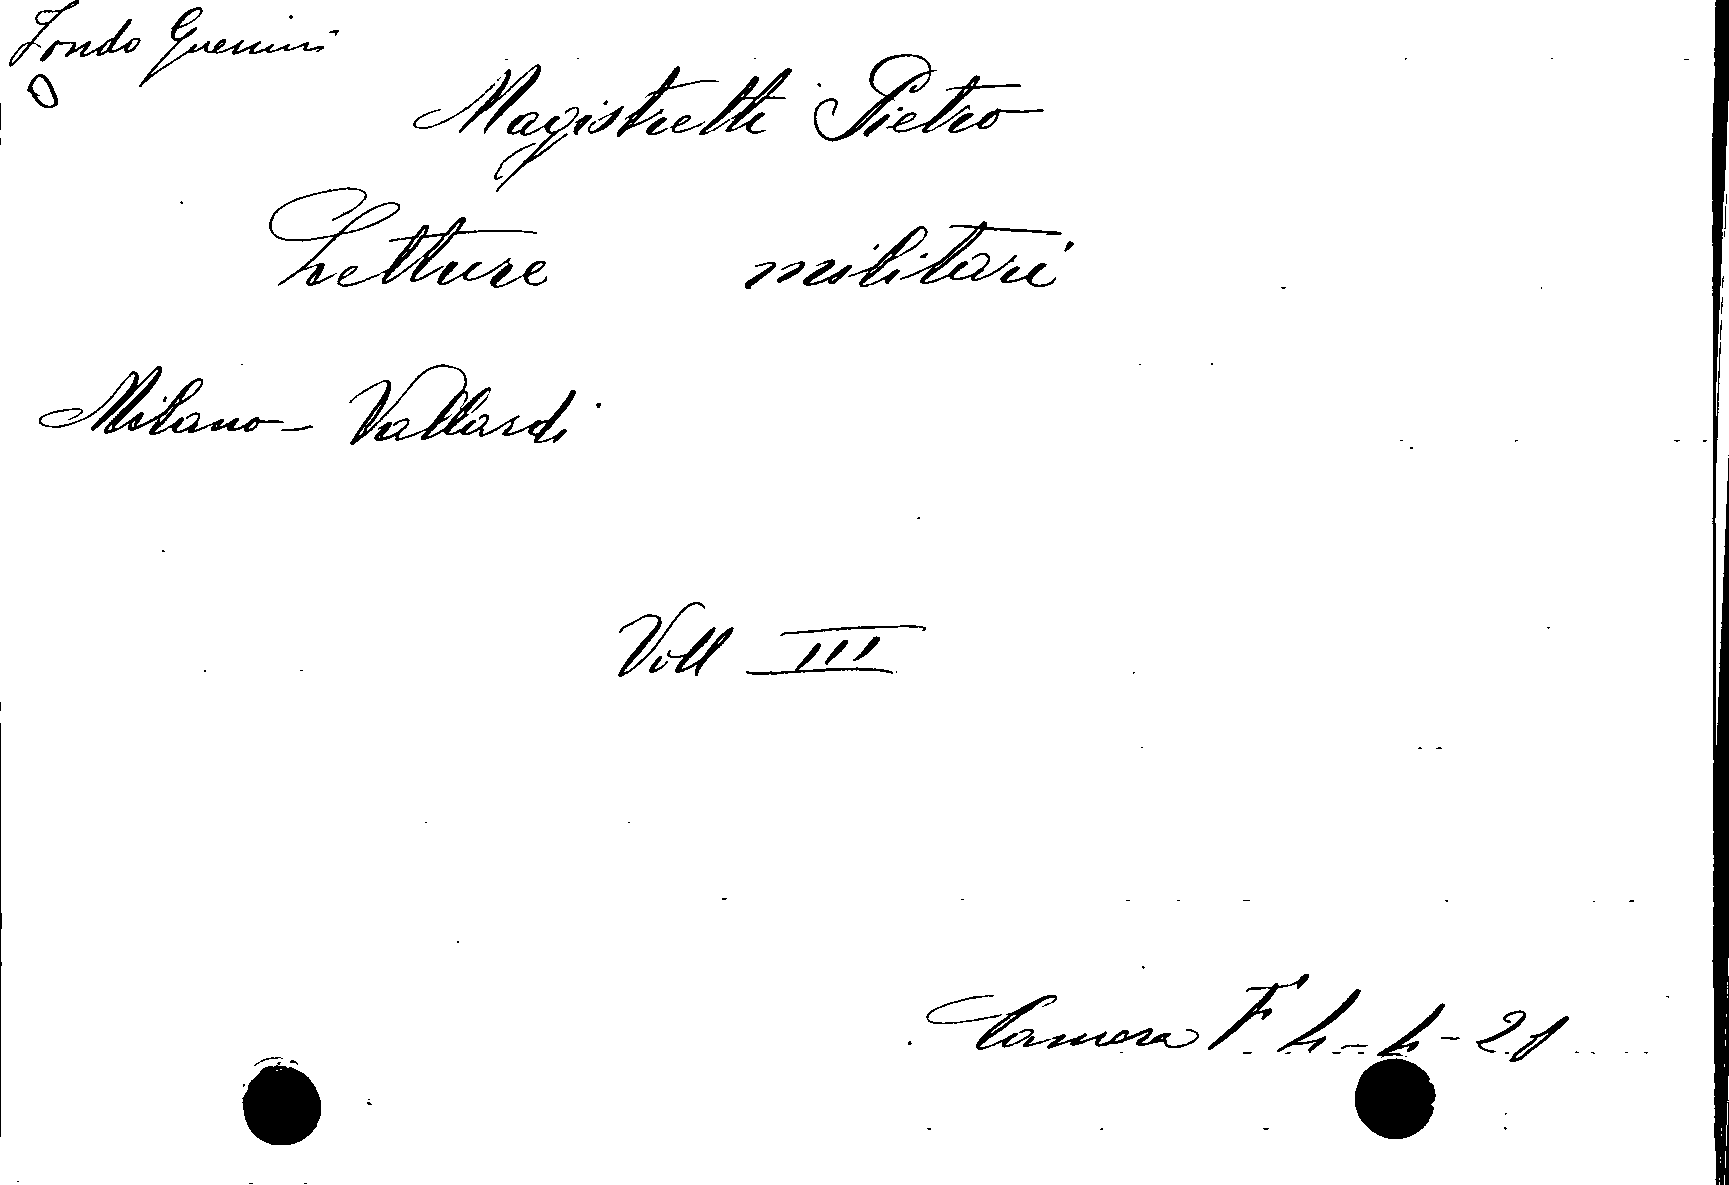 Fondo Guerrini
0
Magistretti Pietro
Letture militari
Milano - Vallardi
Voll III
Camera F 4-4-21